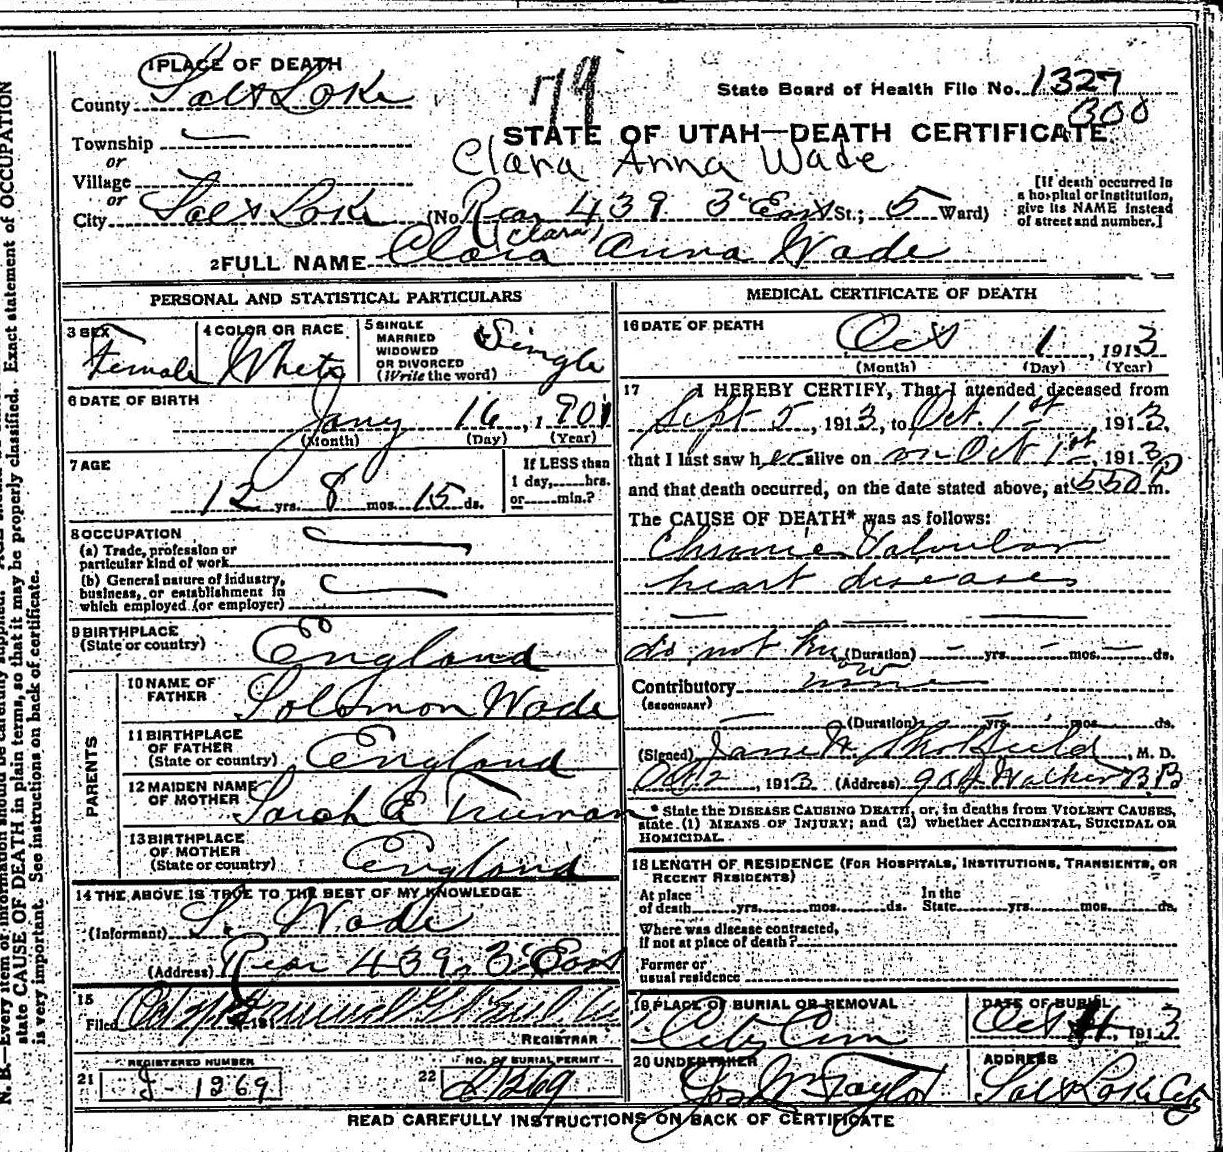 1 PLACE OF DEATH
County Salt Lake
Township
or
Village
or
City Salt Lake (No. Rear 439 3d East St.; 5 Ward)
79
State Board of Health File No. 1327
300
STATE OF UTAH—DEATH CERTIFICATE
Clara Anna Wade
[If death occurred in
a hospital or institution,
give its NAME instead
of street and number.]
(Clara)
2 FULL NAME Clara Anna Wade
PERSONAL AND STATISTICAL PARTICULARS
3 SEX
Female
4 COLOR OR RACE
White
5 SINGLE
MARRIED
WIDOWED
OR DIVORCED
(Write the word)
Single
6 DATE OF BIRTH
Jany 16, 1901
(Month) (Day) (Year)
7 AGE
12 yrs. 8 mos. 15 ds.
If LESS than
1 day, hrs.
or min.?
8 OCCUPATION
(a) Trade, profession or
particular kind of work
(b) General nature of industry,
business, or establishment in
which employed (or employer)
9 BIRTHPLACE
(State or country)
England
PARENTS
10 NAME OF
FATHER
Solomon Wade
11 BIRTHPLACE
OF FATHER
(State or country)
England
12 MAIDEN NAME
OF MOTHER
Sarah E Truman
13 BIRTHPLACE
OF MOTHER
(State or country)
England
14 THE ABOVE IS TRUE TO THE BEST OF MY KNOWLEDGE
(Informant) S. Wade
(Address) Rear 439, 3d East
15
Filed 191
REGISTRAR
REGISTERED NUMBER
21 J-1269
NO. OF BURIAL PERMIT
22 J1269
MEDICAL CERTIFICATE OF DEATH
16 DATE OF DEATH
Oct 1, 1913
(Month) (Day) (Year)
17 I HEREBY CERTIFY, That I attended deceased from
Sept 5, 1913, to Oct. 1st, 1913,
that I last saw her alive on on Oct 1st, 1913
and that death occurred, on the date stated above, at 550 P m.
The CAUSE OF DEATH* was as follows:
Chronic Valvular
heart diseases
do not know (Duration) yrs. mos. ds.
Contributory none
(SECONDARY)
(Duration) yrs. mos. ds.
(Signed) M. D.
Oct 2 1913 (Address) Walker
* State the DISEASE CAUSING DEATH, or, in deaths from VIOLENT CAUSES,
state (1) MEANS OF INJURY; and (2) whether ACCIDENTAL, SUICIDAL OR
HOMICIDAL.
18 LENGTH OF RESIDENCE (FOR HOSPITALS, INSTITUTIONS, TRANSIENTS, OR
RECENT RESIDENTS)
At place
of death yrs. mos. ds.
In the
State yrs. mos. ds.
Where was disease contracted,
if not at place of death?
Former or
usual residence
19 PLACE OF BURIAL OR REMOVAL
City Cem
DATE OF BURIAL
Oct 4, 1913
20 UNDERTAKER
Jos Wm Taylor
ADDRESS
Salt Lake City
READ CAREFULLY INSTRUCTIONS ON BACK OF CERTIFICATE
N. B.—Every item of information should be carefully supplied.
state CAUSE OF DEATH in plain terms, so that it may be properly classified. Exact statement of OCCUPATION
is very important. See instructions on back of certificate.